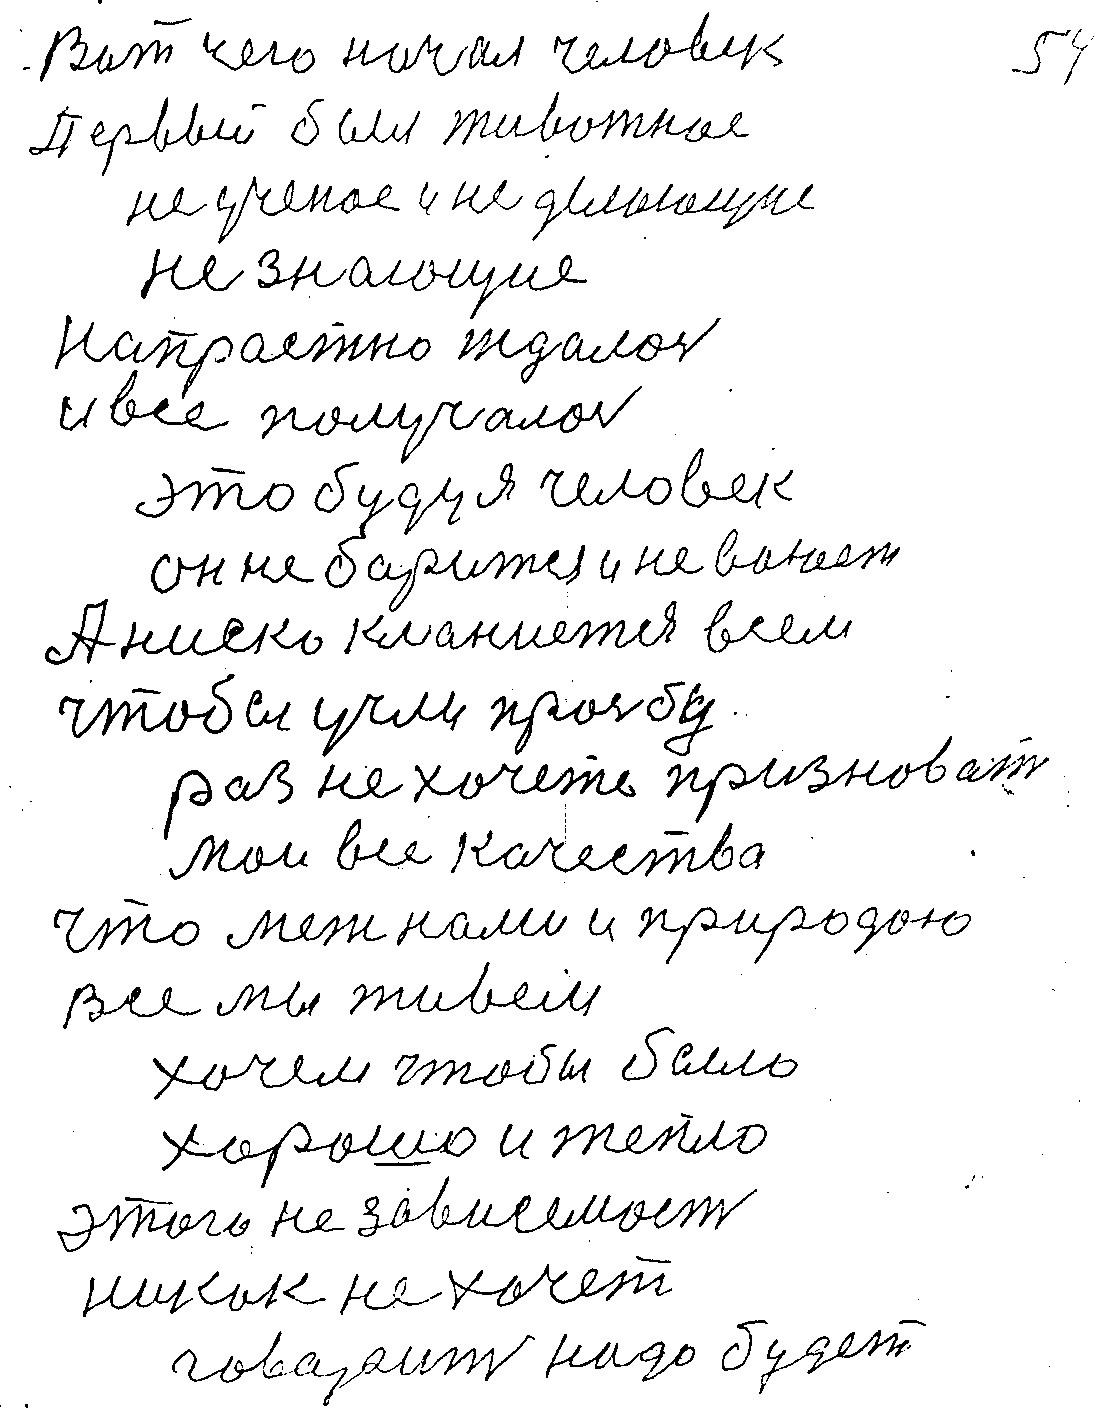 Вот чего начал человек 54
Первый были животное
не ученое и не делающие
не знающие
Напрастно ждалось
и все получалось
это будуя человек
он не барится и не воюет
А ниско кланиется всем
чтобы учли прозьбу
раз не хочеть призноват
мои все качества
что меж нами и природою
все мы живем
хочем чтобы было
хорошо и тепло
этого не зависемост
никак не хочет
говарит надо будет